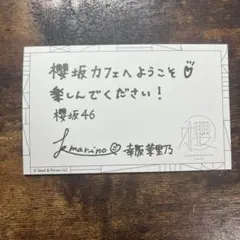 櫻坂カフェへようこそ
楽しんでください！
櫻坂46
幸阪茉里乃
© Seed & Flower LLC